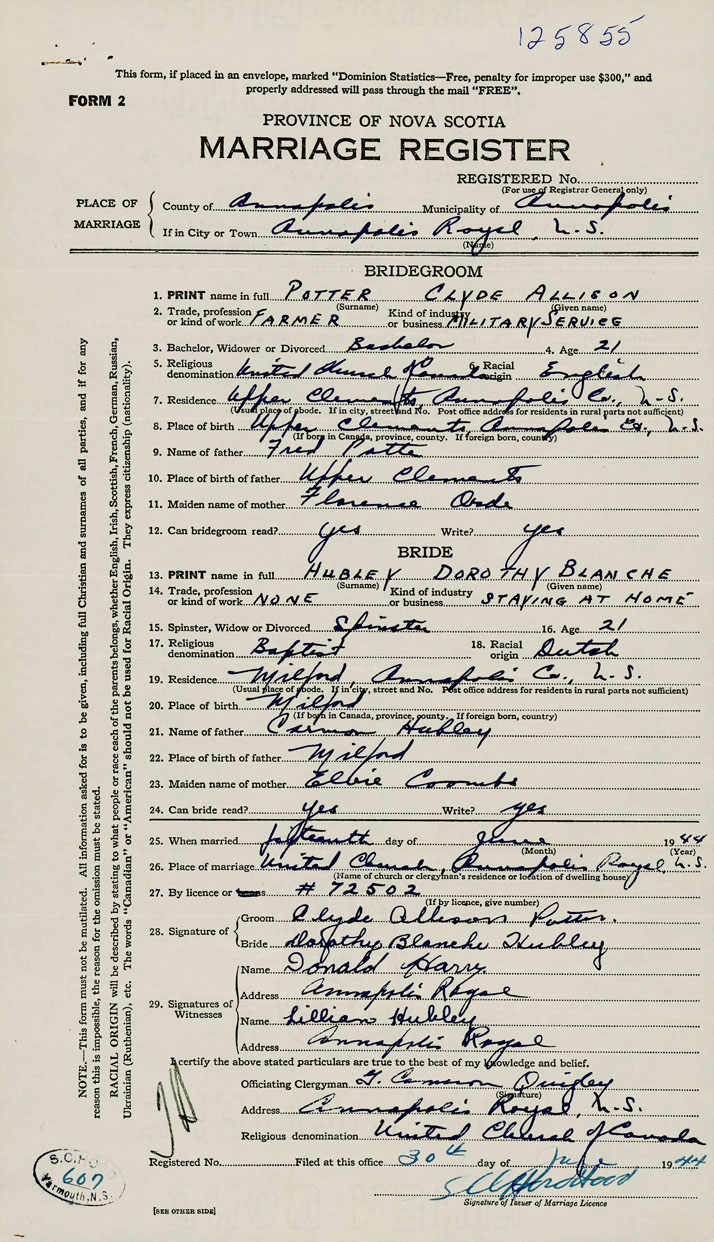 125855
This form, if placed in an envelope, marked "Dominion Statistics—Free, penalty for improper use $300," and
properly addressed will pass through the mail "FREE".
FORM 2
PROVINCE OF NOVA SCOTIA
MARRIAGE REGISTER
REGISTERED No.
(For use of Registrar General only)
PLACE OF MARRIAGE
County of Annapolis Municipality of Annapolis
If in City or Town Annapolis Royal, N.S.
(Name)
BRIDEGROOM
1. PRINT name in full POTTER CLYDE ALLISON
(Surname) (Given name)
2. Trade, profession or kind of work FARMER Kind of industry or business MILITARY SERVICE
3. Bachelor, Widower or Divorced Bachelor 4. Age 21
5. Religious denomination United Church of Canada 6. Racial origin English
7. Residence Upper Clements Annapolis Co., N.S.
(Usual place of abode. If in city, street and No. Post office address for residents in rural parts not sufficient)
8. Place of birth Upper Clements Annapolis Co., N.S.
(If born in Canada, province, county. If foreign born, country)
9. Name of father Fred Potter
10. Place of birth of father Upper Clements
11. Maiden name of mother Florence
12. Can bridegroom read? yes Write? yes
BRIDE
13. PRINT name in full HUBLEY DOROTHY BLANCHE
(Surname) (Given name)
14. Trade, profession or kind of work NONE Kind of industry or business STAYING AT HOME
15. Spinster, Widow or Divorced Spinster 16. Age 21
17. Religious denomination Baptist 18. Racial origin Dutch
19. Residence Milford, Annapolis Co., N.S.
(Usual place of abode. If in city, street and No. Post office address for residents in rural parts not sufficient)
20. Place of birth Milford
(If born in Canada, province, county. If foreign born, country)
21. Name of father Carmon Hubley
22. Place of birth of father Milford
23. Maiden name of mother Coombs
24. Can bride read? yes Write? yes
25. When married fifteenth day of June 1944
(Month) (Year)
26. Place of marriage United Church, Annapolis Royal, N.S.
(Name of church or clergyman's residence or location of dwelling house)
27. By licence or # 72502
(If by licence, give number)
28. Signature of
Groom Clyde Allison Potter.
Bride Dorothy Blanche Hubley
29. Signatures of Witnesses
Name Donald Harry
Address Annapolis Royal
Name Lillian Hubley
Address Annapolis Royal
I certify the above stated particulars are true to the best of my knowledge and belief.
Officiating Clergyman Cameron Quigley
(Signature)
Address Annapolis Royal, N.S.
Religious denomination United Church of Canada
Registered No. Filed at this office 30th day of 1944
Signature of Issuer of Marriage Licence
[SEE OTHER SIDE]
607
Yarmouth, N.S.
NOTE.—This form must not be mutilated. All information asked for is to be given, including full Christian and surnames of all parties, and if for any
reason this is impossible, the reason for the omission must be stated.
RACIAL ORIGIN will be described by stating to what people or race each of the parents belongs, whether English, Irish, Scottish, French, German, Russian,
Ukrainian (Ruthenian), etc. The words "Canadian" or "American" should not be used for Racial Origin. They express citizenship (nationality).